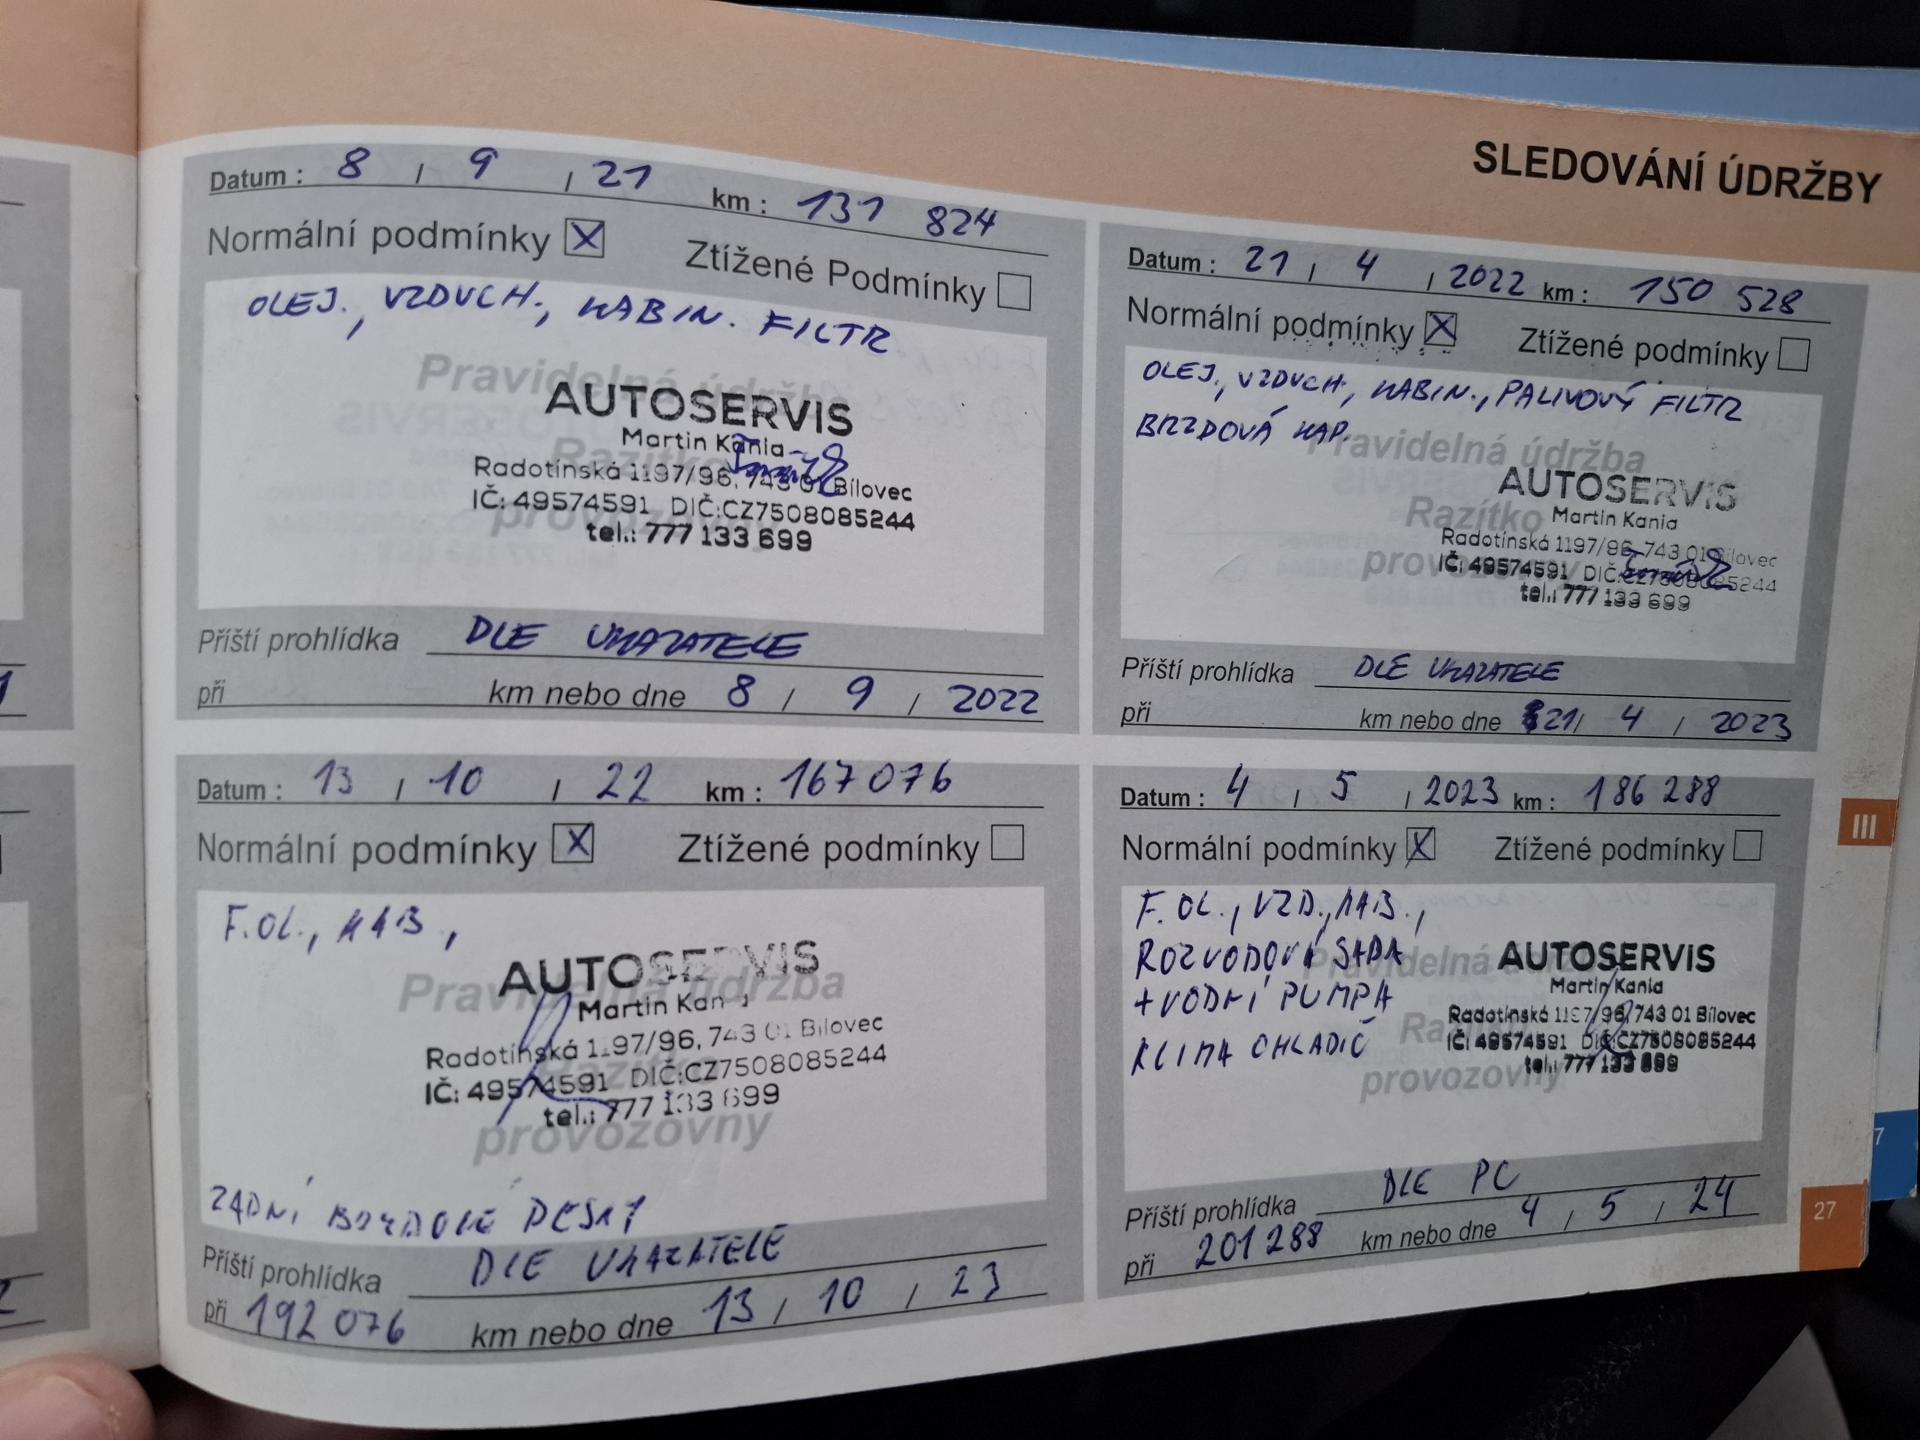 SLEDOVÁNÍ ÚDRŽBY
Datum : 8 / 9 / 21 km : 131 824
Normální podmínky X Ztížené Podmínky
OLEJ., VZDUCH., KABIN. FILTR
Pravidelná údržba
Razítko
provozovny
AUTOSERVIS
Martin Kania
Radotínská 1197/96, 743 01 Bílovec
IČ: 49574591 DIČ:CZ7508085244
tel.: 777 133 699
Příští prohlídka DLE UKAZATELE
při km nebo dne 8 / 9 / 2022
Datum : 21 / 4 / 2022 km : 150 528
Normální podmínky X Ztížené podmínky
OLEJ., VZDUCH., KABIN., PALIVOVÝ FILTR
BRZDOVÁ KAP.
Pravidelná údržba
Razítko
provozovny
AUTOSERVIS
Martin Kania
Radotínská 1197/96, 743 01 Bílovec
IČ: 49574591 DIČ:CZ7508085244
tel.: 777 133 699
Příští prohlídka DLE UKAZATELE
při km nebo dne 21 / 4 / 2023
Datum : 13 / 10 / 22 km : 167 076
Normální podmínky X Ztížené podmínky
F.OL., KAB,
Pravidelná údržba
Razítko
provozovny
AUTOSERVIS
Martin Kan
Radotínská 1197/96, 743 01 Bílovec
IČ: 49574591 DIČ:CZ7508085244
tel.: 777 133 699
ZADNÍ BRZDOVÉ DESKY
Příští prohlídka DLE UKAZATELE
při 192 076 km nebo dne 13 / 10 / 23
Datum : 4 / 5 / 2023 km : 186 288
Normální podmínky X Ztížené podmínky
F. OL., VZD., KAB.,
ROZVODOVÁ SADA
+ VODNÍ PUMPA
KLIMA CHLADIČ
Pravidelná údržba
Razítko
provozovny
AUTOSERVIS
Martin Kania
Radotínská 1197/96, 743 01 Bílovec
IČ: 49574591 DIČ:CZ7508085244
tel.: 777 133 699
Příští prohlídka DLE PC
při 201 288 km nebo dne 4 / 5 / 24
III
7
27